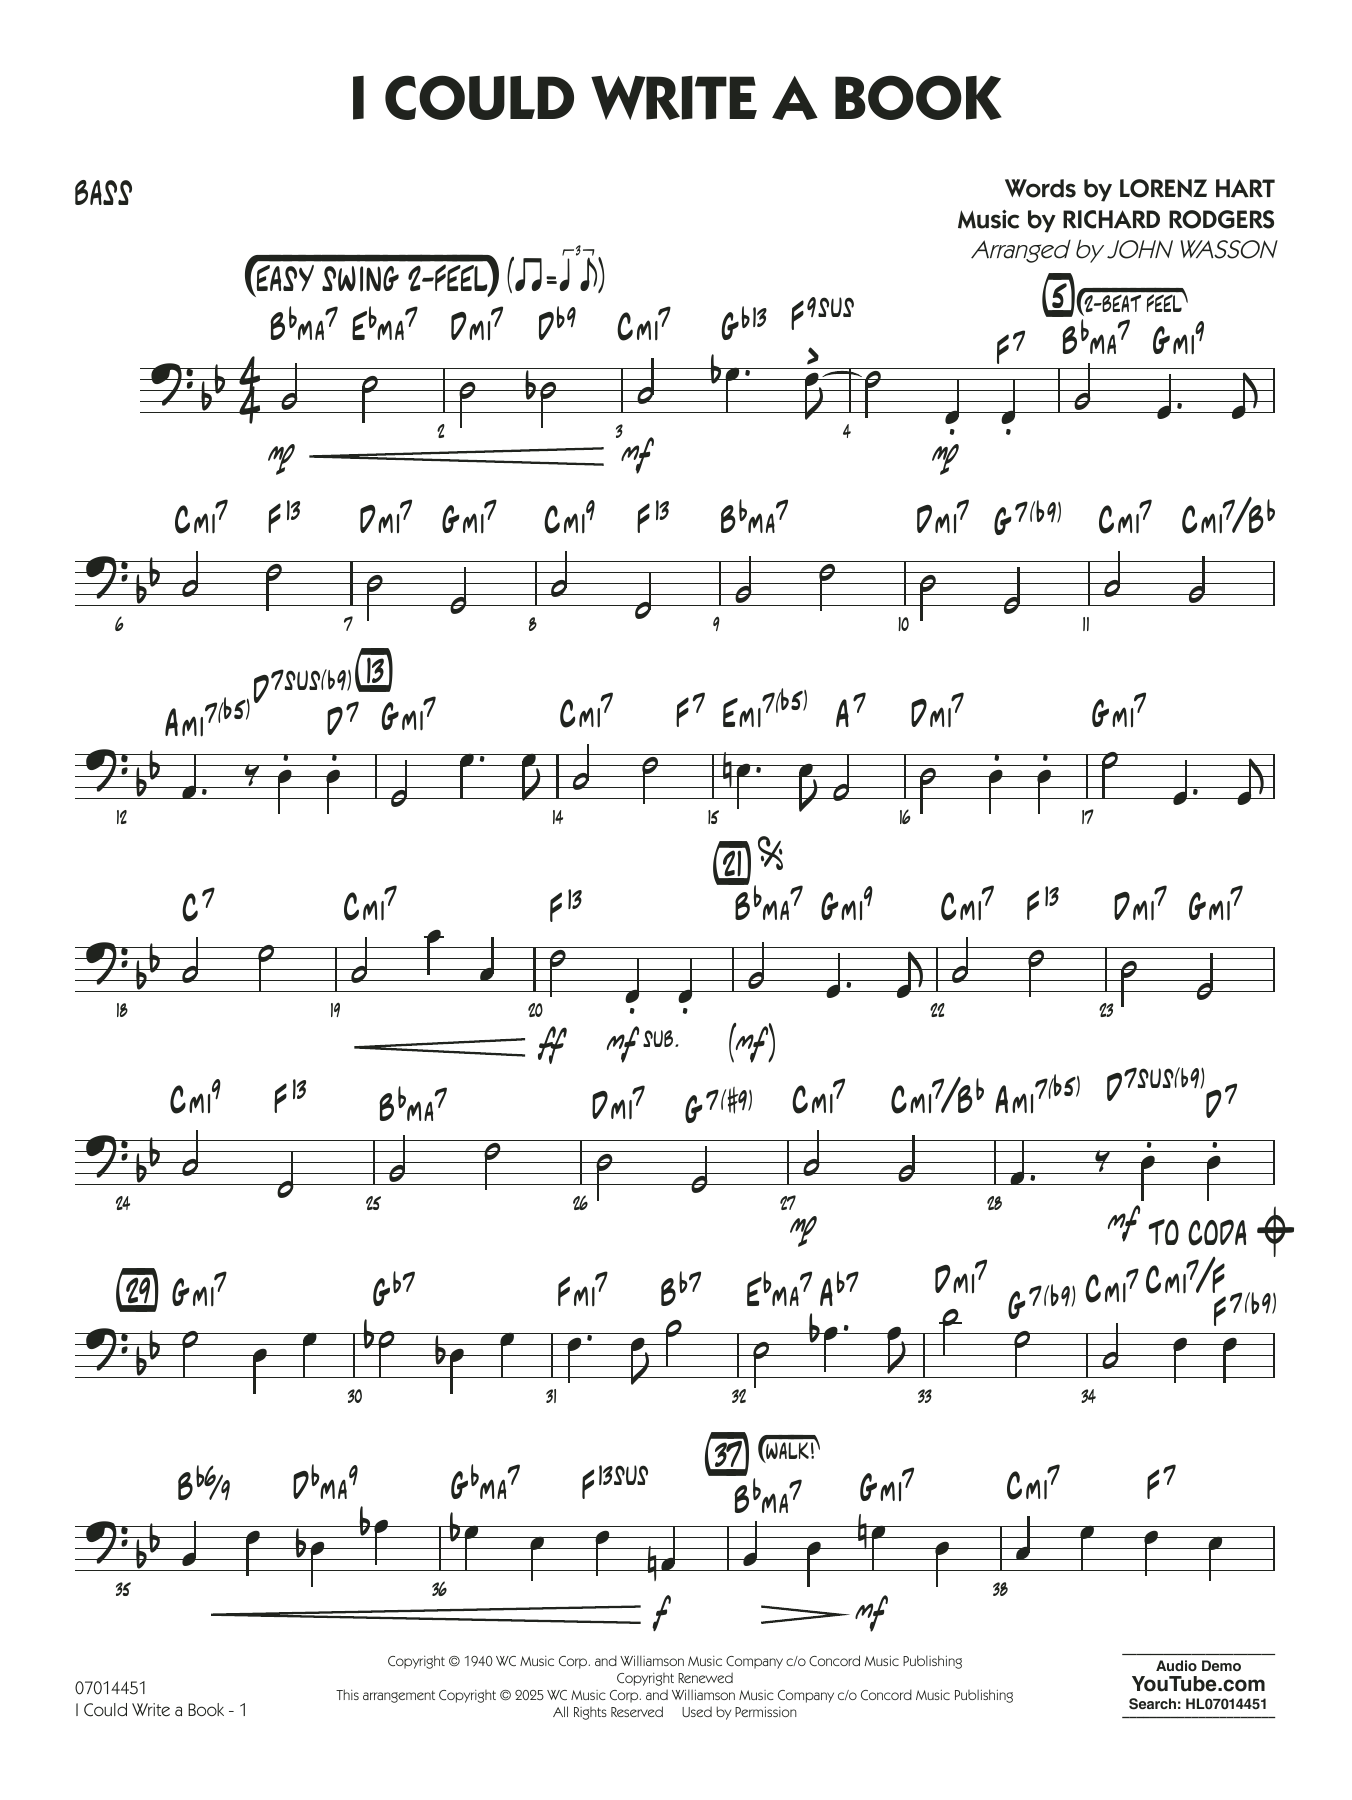 I COULD WRITE A BOOK
BASS
Words by LORENZ HART
Music by RICHARD RODGERS
Arranged by JOHN WASSON
EASY SWING 2-FEEL (♫=♩♪) 3
5 2-BEAT FEEL
B♭MA7 E♭MA7 DMI7 D♭9 CMI7 G♭13 F9SUS F7 B♭MA7 GMI9
4 4
2 3 4
mp mf mp
CMI7 F13 DMI7 GMI7 CMI9 F13 B♭MA7 DMI7 G7(♭9) CMI7 CMI7/B♭
6 7 8 9 10 11
13
AMI7(♭5) D7SUS(♭9) D7 GMI7 CMI7 F7 EMI7(♭5) A7 DMI7 GMI7
12 14 15 16 17
21 𝄋
C7 CMI7 F13 B♭MA7 GMI9 CMI7 F13 DMI7 GMI7
18 19 20 22 23
ff mf SUB. (mf)
CMI9 F13 B♭MA7 DMI7 G7(#9) CMI7 CMI7/B♭ AMI7(♭5) D7SUS(♭9) D7
24 25 26 27 28
mp mf TO CODA 𝄌
29 GMI7 G♭7 FMI7 B♭7 E♭MA7 A♭7 DMI7 G7(♭9) CMI7 CMI7/F F7(♭9)
30 31 32 33 34
37 WALK!
B♭6/9 D♭MA9 G♭MA7 F13SUS B♭MA7 GMI7 CMI7 F7
35 36 38
f mf
Copyright © 1940 WC Music Corp. and Williamson Music Company c/o Concord Music Publishing
Copyright Renewed
This arrangement Copyright © 2025 WC Music Corp. and Williamson Music Company c/o Concord Music Publishing
All Rights Reserved Used by Permission
07014451
I Could Write a Book - 1
Audio Demo
YouTube.com
Search: HL07014451